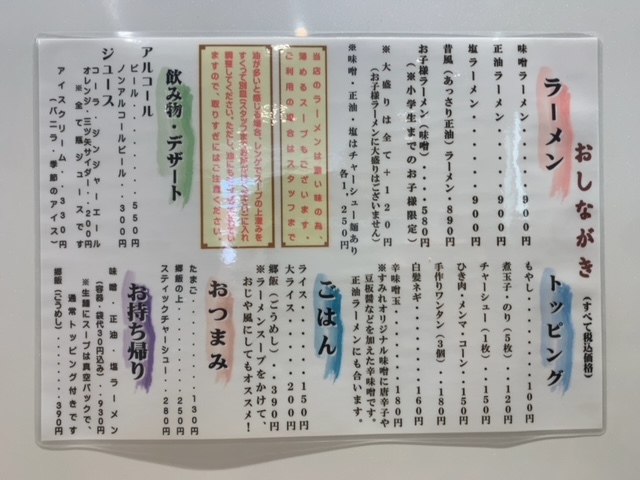 おしながき
(すべて税込価格)
ラーメン
味噌ラーメン・・・・・900円
正油ラーメン・・・・・900円
塩ラーメン・・・・・・900円
昔風(あっさり正油)ラーメン・890円
お子様ラーメン(味噌)・・・・580円
(※小学生までのお子様限定)
※大盛りは全て+120円
(お子様ラーメンに大盛りはございません)
※味噌・正油・塩はチャーシュー麺あり
各1,250円
当店のラーメンは濃い味の為、
薄めるスープもございます。
ご利用の場合はスタッフまで
油が多いと感じる場合、レンゲでスープの上澄みを
調整してください。ただし、
ますので、取りすぎにはご注意ください。
飲み物・デザート
アルコール
ビール・・・・・・・・550円
ノンアルコールビール・・330円
ジュース
コーラ、ジンジャーエール
オレンジ、三ツ矢サイダー・・200円
※全て瓶ジュースです
アイスクリーム・・・330円
(バニラ、季節のアイス)
トッピング
もやし・・・・・・・・100円
煮玉子・のり(5枚)・・・120円
チャーシュー(1枚)・・・150円
ひき肉・メンマ・コーン・・150円
手作りワンタン(3個)・・・180円
白髪ネギ・・・・・・・160円
辛味噌玉・・・・・・・180円
※すみれオリジナル味噌に唐辛子や
豆板醤などを加えた辛味噌です。
正油ラーメンにも合います。
ごはん
ライス・・・・・・・150円
大ライス・・・・・・200円
郷飯(ごうめし)・・・390円
※ラーメンスープをかけて、
おじや風にしてもオススメ!
おつまみ
たまご・・・・・・・・130円
郷飯の上・・・・・・・250円
スティックチャーシュー・・280円
お持ち帰り
味噌・正油・塩ラーメン
(容器・袋代30円込み)・・930円
※生麺にスープは真空パックで、
通常トッピング付きです
郷飯(ごうめし)・・・・390円